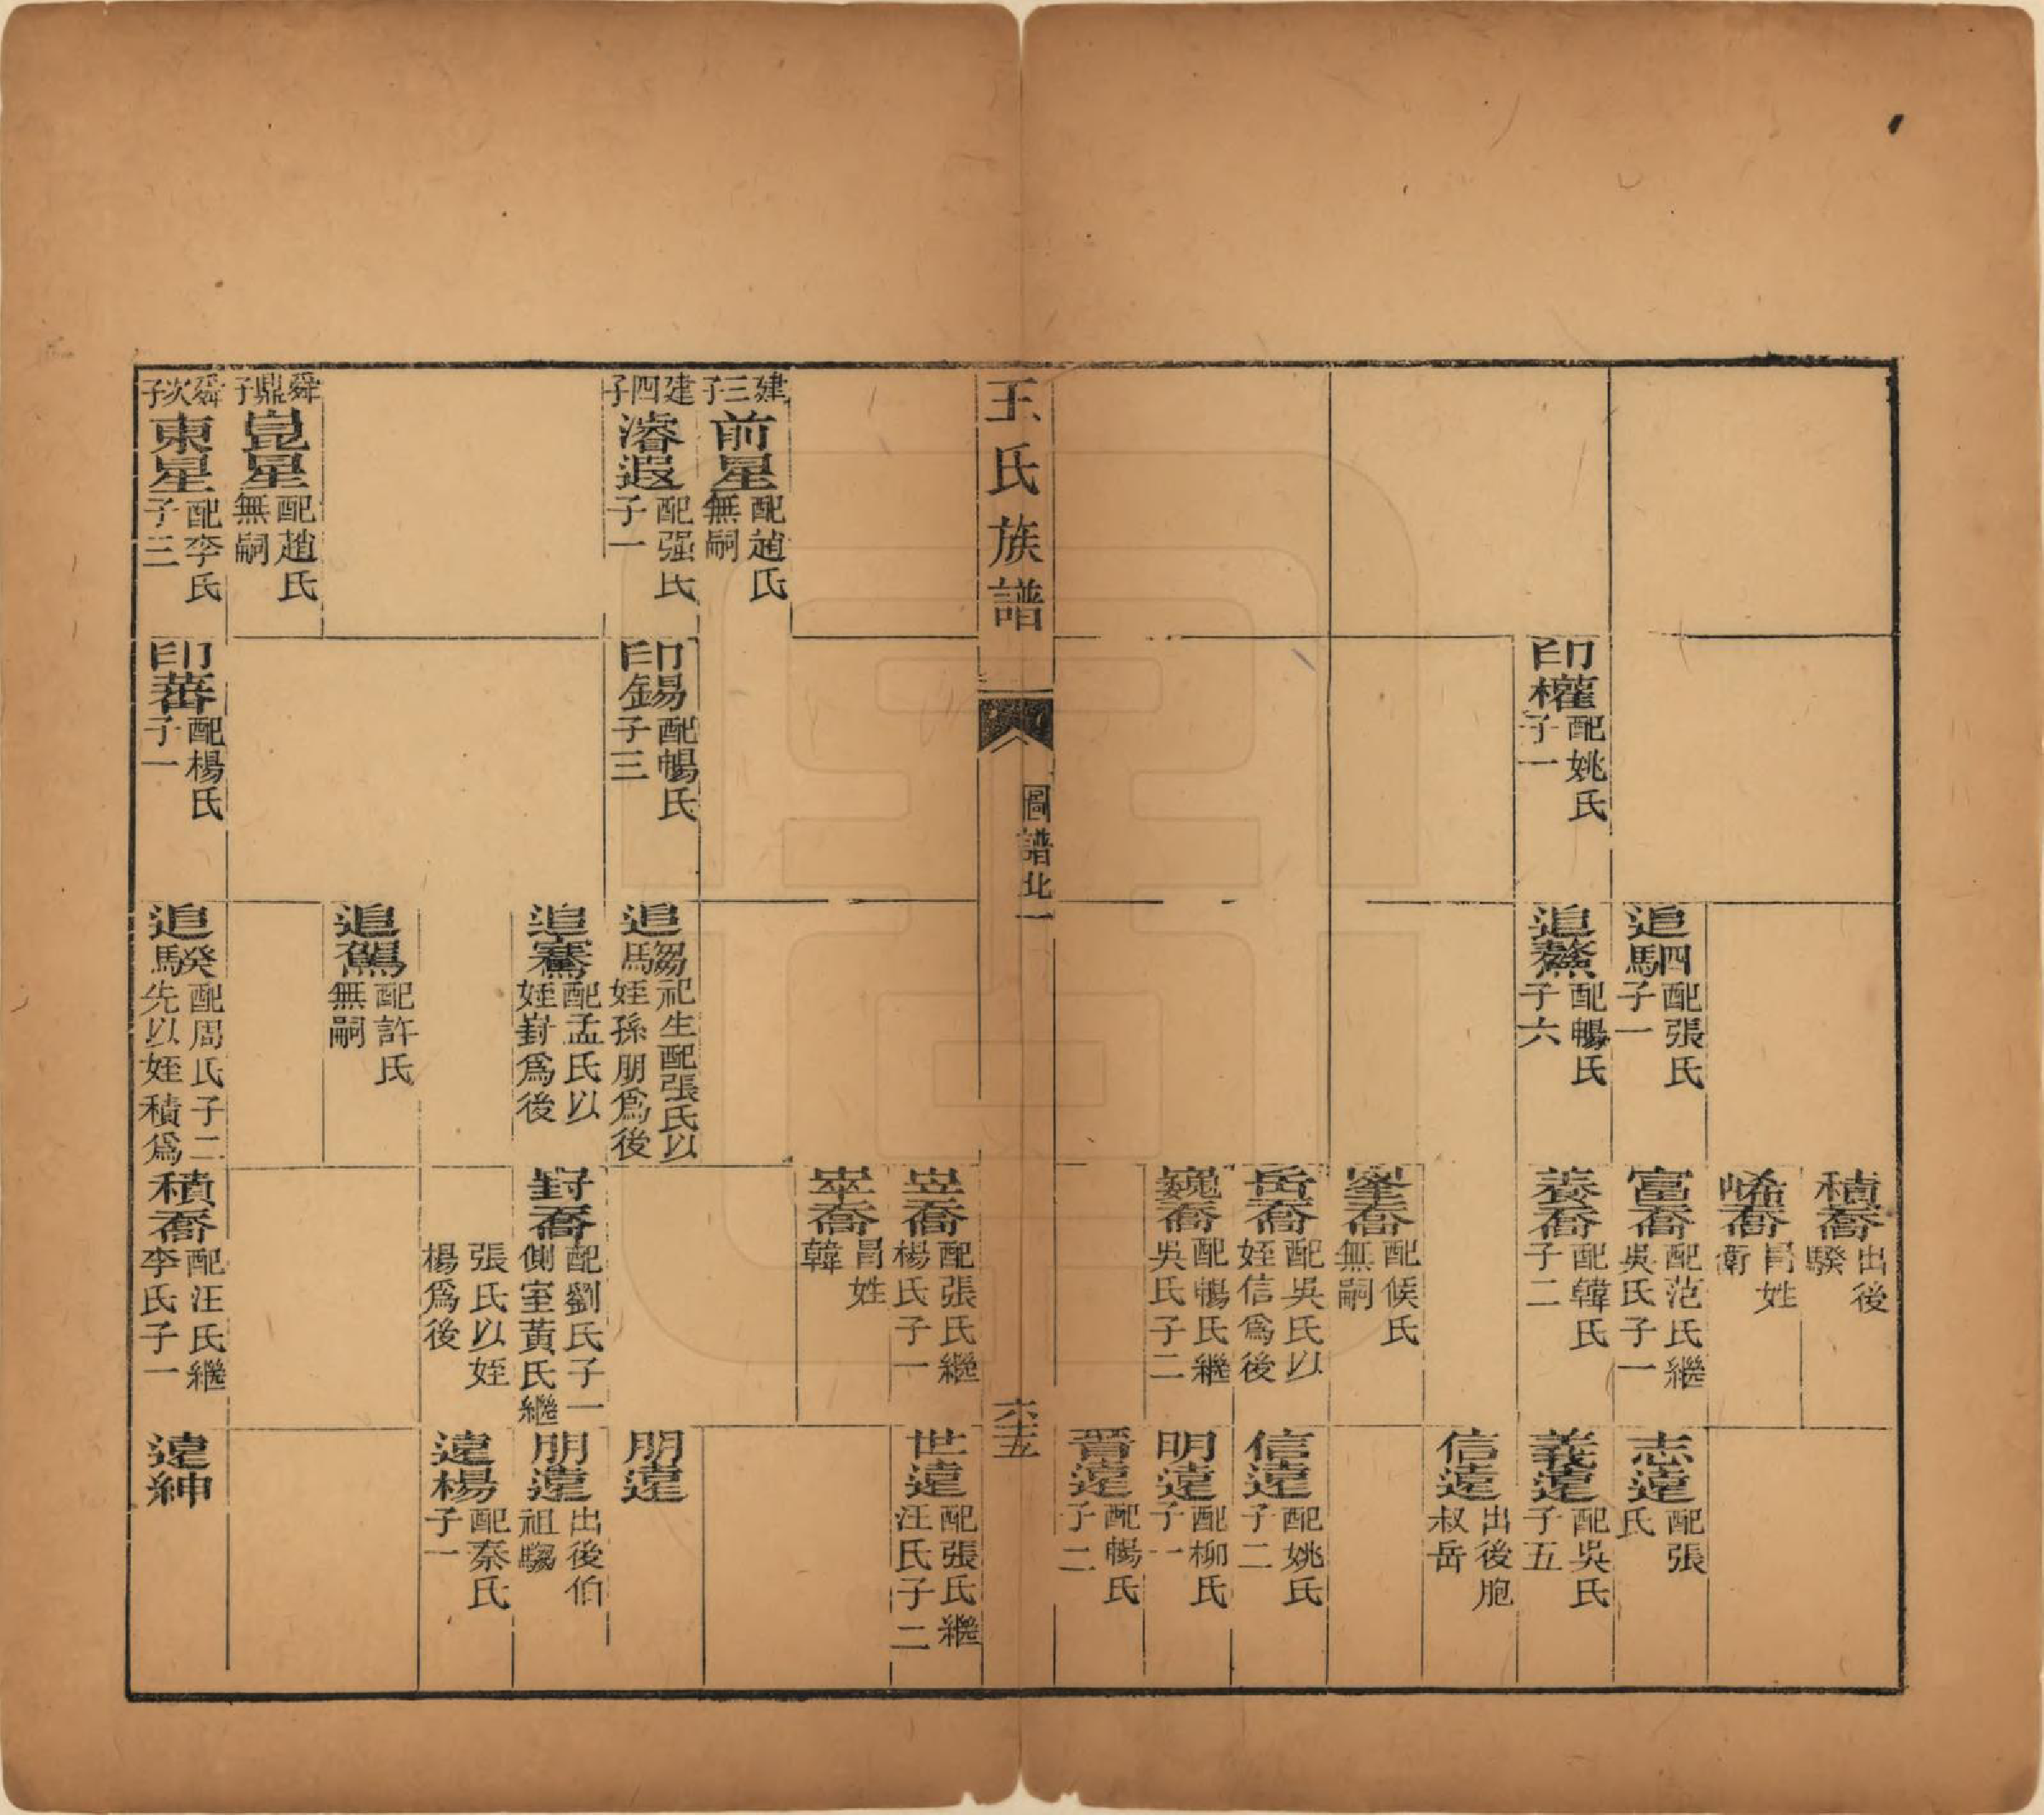 積喬 出後
騤
㟓喬 冐姓
衛
追駟 配張氏
子一
富喬 配范氏繼
吳氏子一
志遠 配張
氏
印權 配姚氏
子一
追驁 配暢氏
子六
養喬 配韓氏
子二
義遠 配吳氏
子五
信遠 出後胞
叔岳
峯喬 配候氏
無嗣
岳喬 配吳氏以
姪信爲後
信遠 配姚氏
子二
巍喬 配暢氏繼
吳氏子二
明遠 配柳氏
子一
晉遠 配暢氏
子二
王氏族譜
圖譜北一
六十五
岦喬 配張氏繼
楊氏子一
世遠 配張氏繼
汪氏子二
崒喬 冐姓
韓
建三子
前星 配趙氏
無嗣
建四子
濬遐 配强氏
子一
印錫 配暢氏
子三
追騶 祀生配張氏以
姪孫朋爲後
朋遠
追騫 配孟氏以
姪崶爲後
崶喬 配劉氏子一
側室黃氏繼
張氏以姪
楊爲後
朋遠 出後伯
祖騶
遠楊 配秦氏
子一
追駕 配許氏
無嗣
舜鼎子
崑星 配趙氏
無嗣
舜次子
東星 配李氏
子三
印蕃 配楊氏
子一
追騤 配周氏子二
先以姪積爲
積喬 配汪氏繼
李氏子一
遠紳